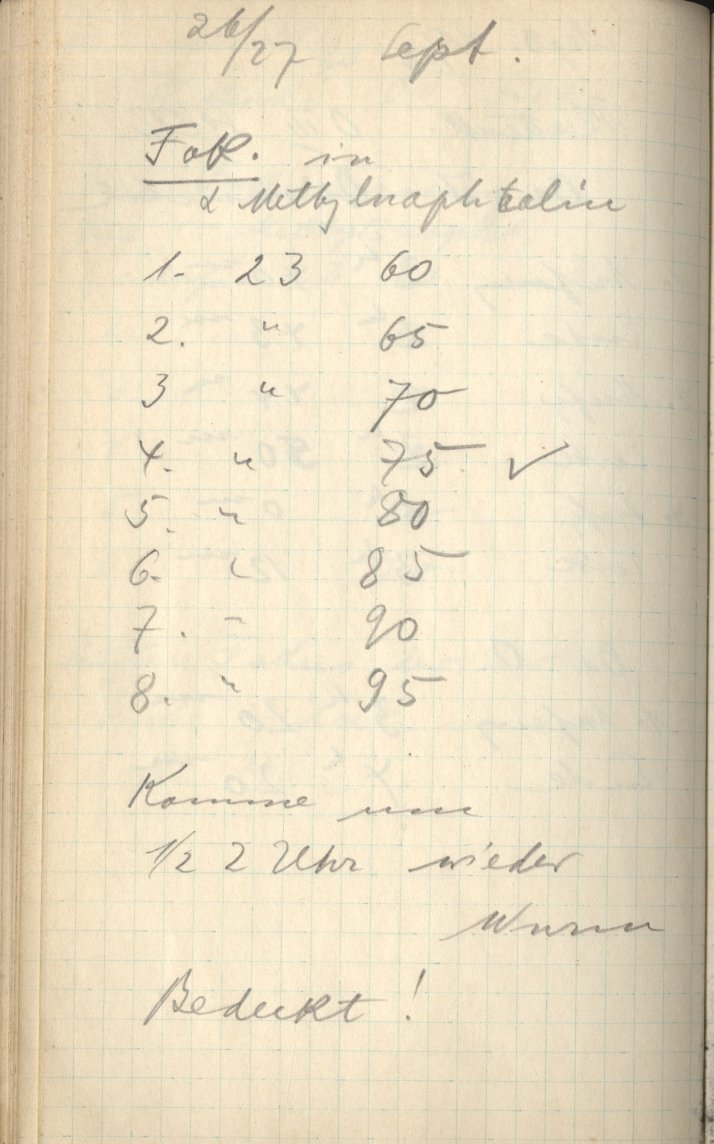 26/27 Sept.
Fok. in
α Methylnaphtalin
1. 23 60
2. " 65
3 " 70
4. " 75 ✓
5. " 80
6. " 85
7. " 90
8. " 95
Komme um
1/2 2 Uhr wieder
Wurm
Bedeckt!